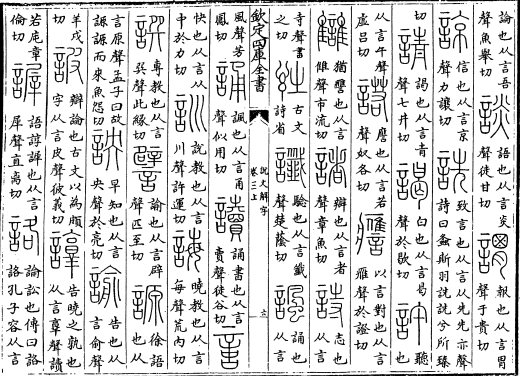 論也从言吾聲魚舉切 談 語也从言炎聲徒甘切 謂 報也从言胃聲于貴切
諒 信也从言京聲力讓切 詵 致言也从言从先先亦聲詩曰螽斯羽詵詵兮所臻
切 請 謁也从言青聲七井切 謁 白也从言曷聲於歇切 許 聽也
从言午聲虛呂切 諾 譍也从言若聲奴各切 譍 以言對也从言雁聲於證切
讎 猶譍也从言雔聲市流切 諸 辯也从言者聲章魚切 詩 志也从言
寺聲書之切 𧥳 古文詩省 讖 驗也从言韱聲楚蔭切 諷 誦也从言
欽定四庫全書 說文解字卷三上
風聲芳鳳切 誦 諷也从言甬聲似用切 讀 誦書也从言賣聲徒谷切 䇾
快也从言从中於力切 訓 說教也从言川聲許運切 誨 曉教也从言每聲荒內切
譔 專教也从言巽聲此緣切 譬 諭也从言辟聲匹至切 謜 徐語也从
言原聲孟子曰故謜謜而來魚怨切 詇 早知也从言央聲於亮切 諭 告也从言俞聲
羊戍切 詖 辯論也古文以為頗字从言皮聲彼義切 諄 告曉之孰也从言𦎫聲讀
若庉章倫切 謘 語諄謘也从言犀聲直离切 詻 論訟也傳曰詻詻孔子容从言